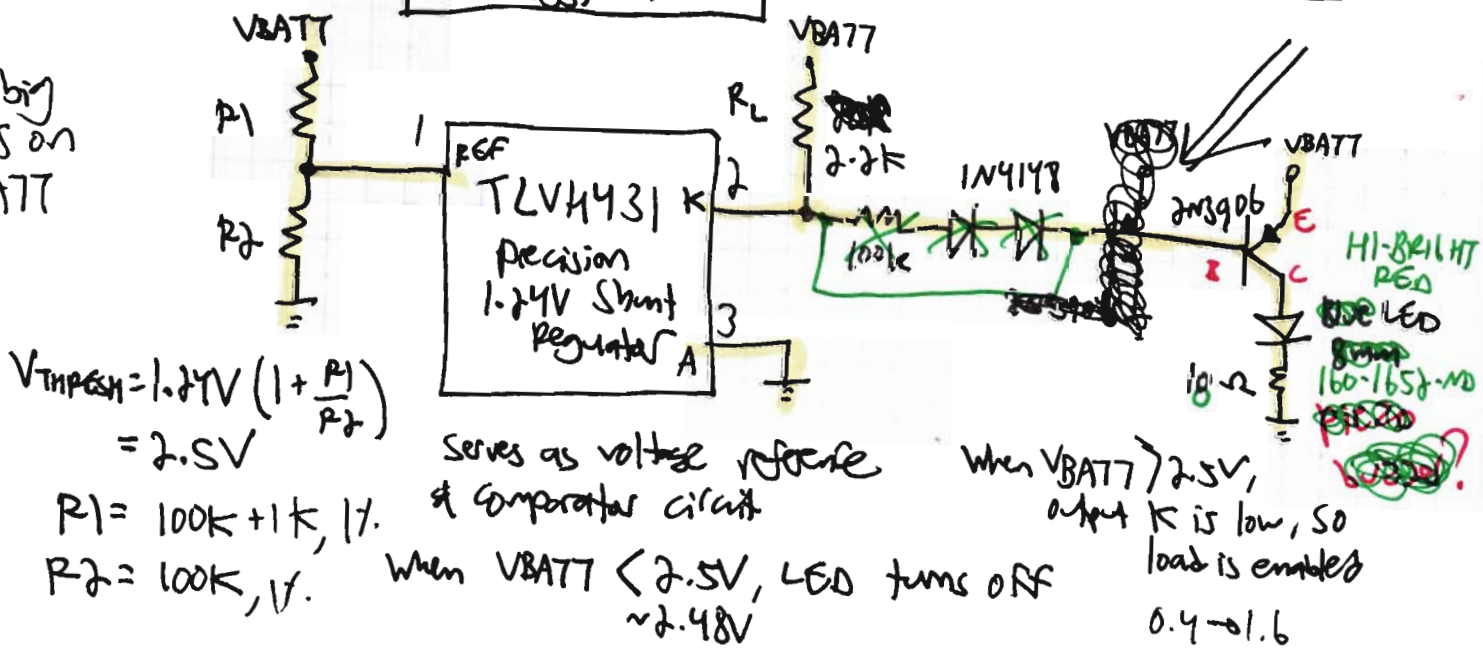 VBATT
big
s on
ATT
R1
R2
1
REF
TLVH431
Precision
1.24V Shunt
Regulator
K
2
A
3
VBATT
RL
2.2K
100k
1N4148
VBATT
2N3906
VBATT
E
C
HI-BRIGHT
RED
LED
8mm
160-1652-ND
18Ω
VTHRESH = 1.24V (1 + R1/R2)
= 2.5V
R1 = 100K + 1K, 1%.
R2 = 100K, 1%.
serves as voltage reference
& comparator circuit
When VBATT < 2.5V, LED turns off
~2.48V
When VBATT > 2.5V,
output K is low, so
load is enabled
0.4 → 1.6